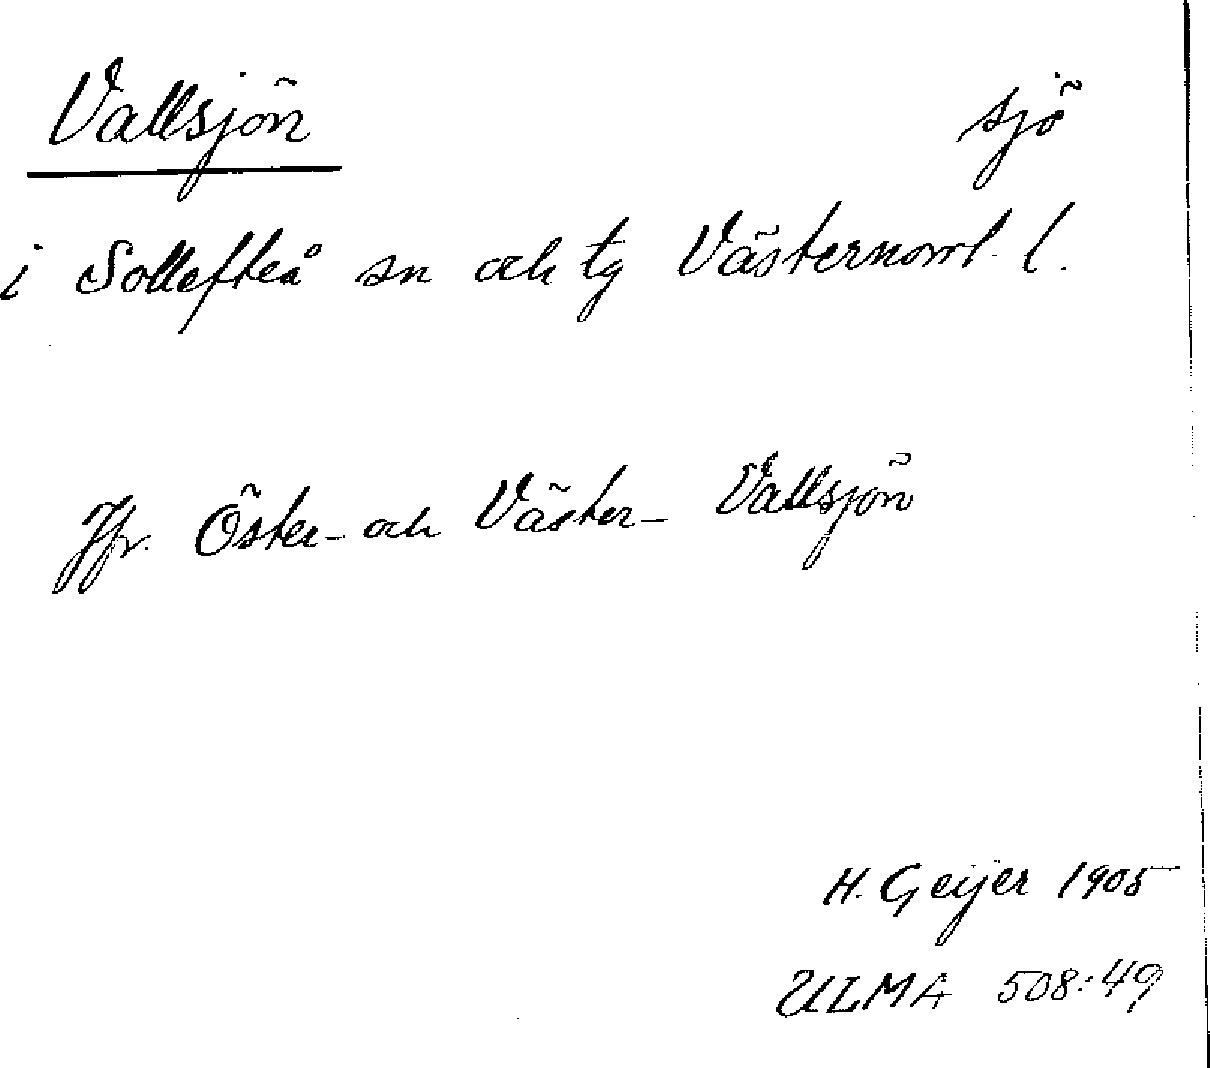 Vallsjön sjö
i Sollefteå sn och tg Västernorrl. l.
Jfr. Öster- och Väster- Vallsjön
H. Geijer 1905
ULMA 508:49